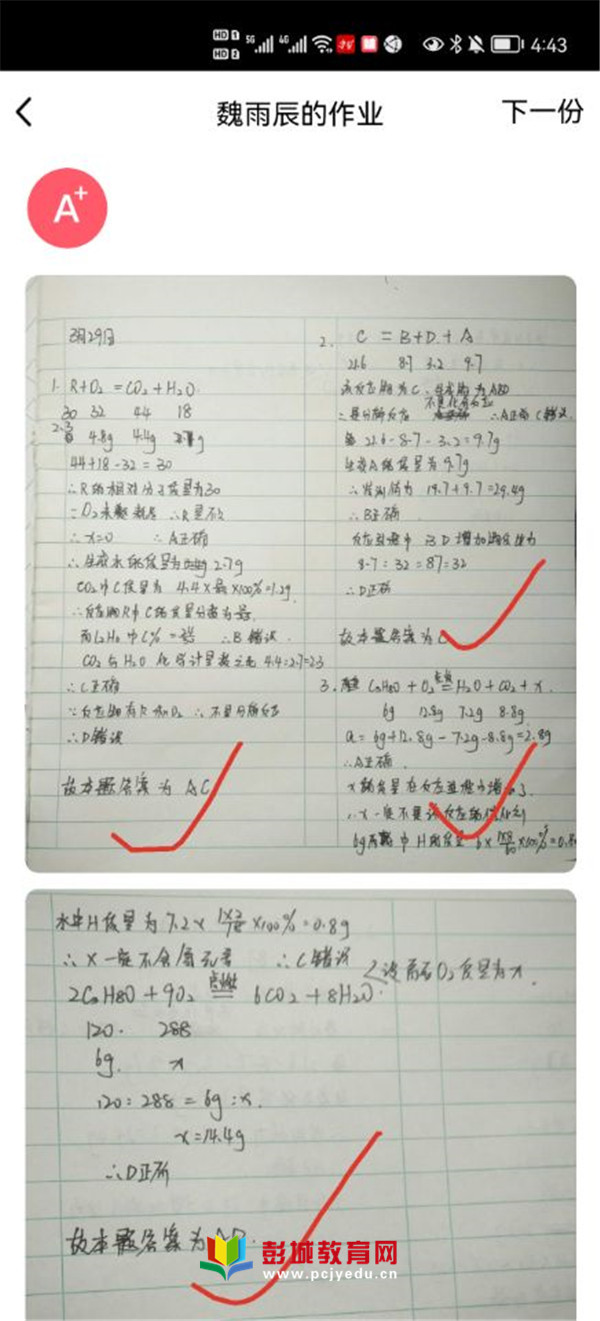 HD 1 5G 4G 4:43
HD 2
魏雨辰的作业
下一份
A+
3月29日
1. R+O₂=CO₂+H₂O
30 32 44 18
2.3 4.8g 4.4g 2.7g
44+18-32=30
∴R的相对分子质量为30
∴x=0 ∴A正确
∴生成水的质量为2.7g
CO₂中C质量为 4.4××100%=1.2g
∴反应物R中C的质量分数为
∴B错误
CO₂与H₂O化学计量数之比 4.4:2.7=
∴C正确
∵反应物有R和O₂ ∴不是分解反应
∴D错误
故本题答案为AC
2. C=B+D+A
21.6 8.7 3.2 9.7
该反应物为C,生成物为ABD
∴是分解反应 ∴A正确 C错误
21.6-8.7-3.2=9.7g
生成A的质量为9.7g
∴待测值为 19.7+9.7=29.4g
∴B正确
反应过程中 B D 增加的质量比为
8.7:3.2=87:32
∴D正确
故本题答案为C
3. C₃H₈O+O₂ 点燃 = H₂O+CO₂+x
6g 12.8g 7.2g 8.8g
a=6g+12.8g-7.2g-8.8g=2.8g
∴A正确
x的质量在反应过程中增加了
∴x一定不是该反应的催化剂
6g 中H的质量 6××100%=0.8g
水中H质量为7.2×1×2/18×100%=0.8g
∴x一定不含氢元素 ∴C错误
<设需要O₂质量为x.
2C₃H₈O+9O₂ 点燃 = 6CO₂+8H₂O
120 288
6g x
120:288=6g:x
x=14.4g
∴D正确
故本题答案为AD.
彭城教育网
www.pcjyedu.cn